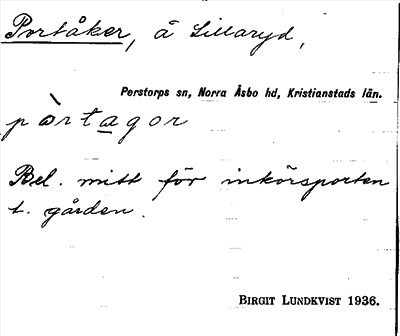 Portåker, å Lillaryd,
Perstorps sn, Norra Åsbo hd, Kristianstads län.
pòrtagor
Bel. mitt för inkörsporten
t. gården.
BIRGIT LUNDKVIST 1936.